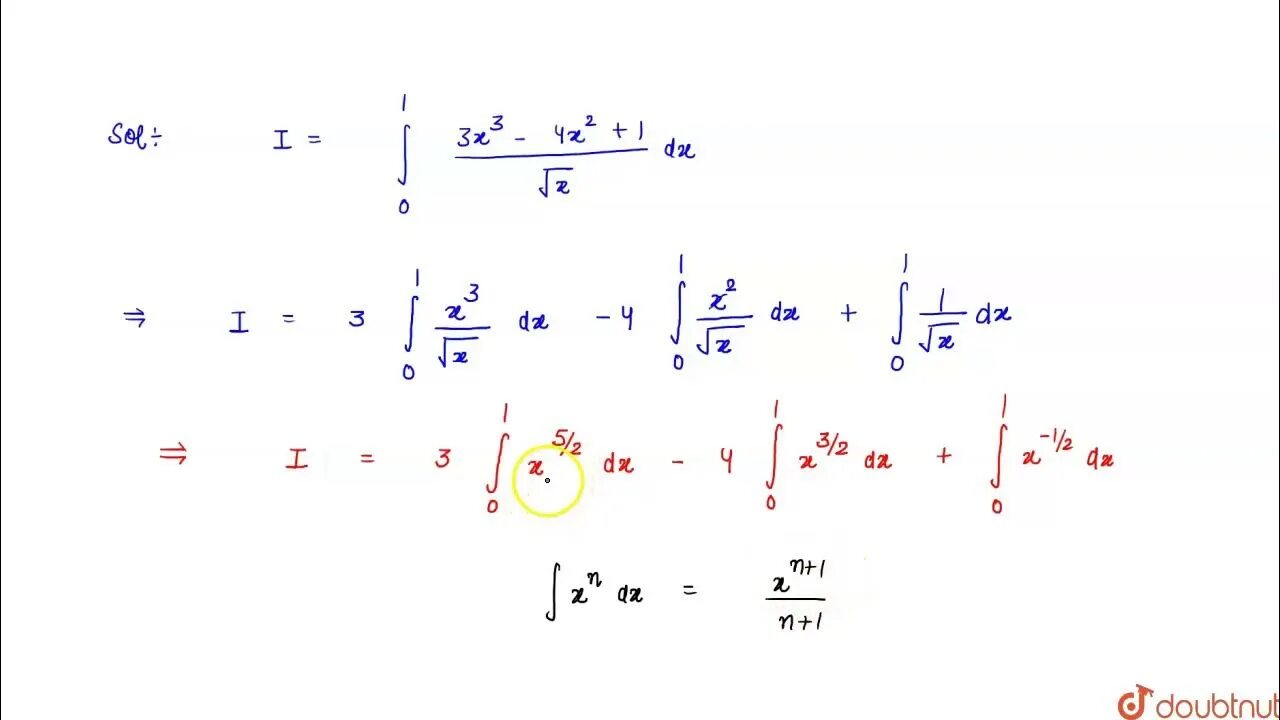 Sol÷ I = ∫₀¹ (3x³ - 4x² + 1)/√x dx
⇒ I = 3 ∫₀¹ x³/√x dx - 4 ∫₀¹ x²/√x dx + ∫₀¹ 1/√x dx
⇒ I = 3 ∫₀¹ x^(5/2) dx - 4 ∫₀¹ x^(3/2) dx + ∫₀¹ x^(-1/2) dx
∫ xⁿ dx = x^(n+1)/(n+1)
doubtnut